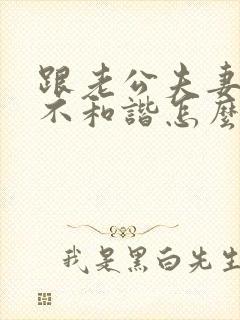 跟老公夫妻
不和諧怎麼
我是黑白先生